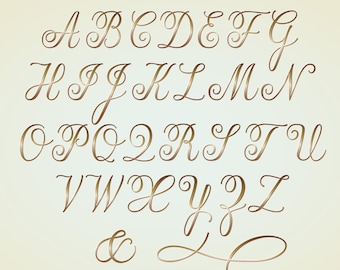 A B C D E F G
H I J K L M N
O P Q R S T U
V W X Y Z
&